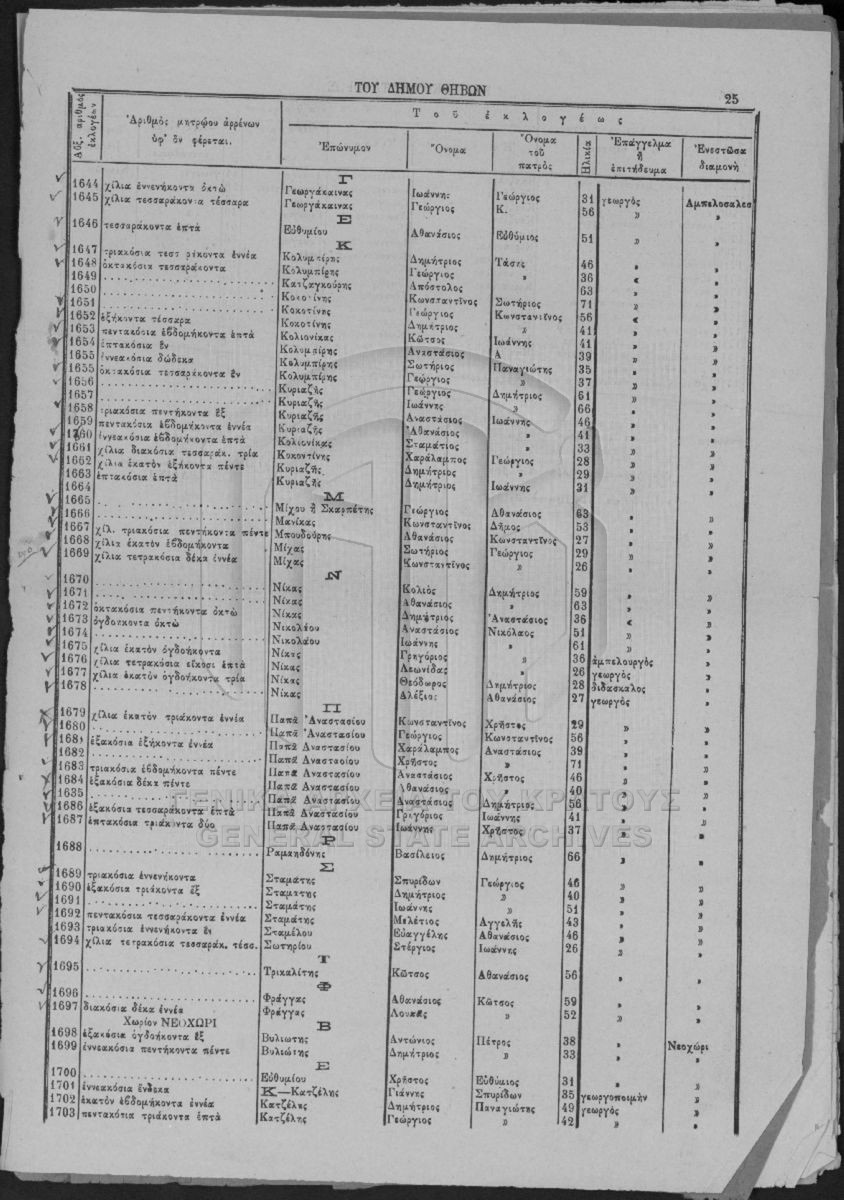 ΤΟΥ ΔΗΜΟΥ ΘΗΒΩΝ 25
Αὔξ. ἀριθμὸς ἐκλογέων
Ἀριθμὸς μητρῴου ἀρρένων ὑφ' ὃν φέρεται.
Τοῦ ἐκλογέως
Ἐπώνυμον Ὄνομα Ὄνομα τοῦ πατρὸς Ἡλικία Ἐπάγγελμα ἢ ἐπιτήδευμα Ἐνεστῶσα διαμονὴ
Γ
1644 χίλια ἐννενήκοντα ὀκτὼ Γεωργάκαινας Ἰωάννης Γεώργιος 31 γεωργὸς Αμπελοσαλεσ
1645 χίλια τεσσαράκοντα τέσσαρα Γεωργάκαινας Γεώργιος Κ. 56 » »
Ε
1646 τεσσαράκοντα ἑπτὰ Εὐθυμίου Ἀθανάσιος Εὐθύμιος 51 » »
Κ
1647 τριακόσια τεσσαράκοντα ἐννέα Κολυμπίρης Δημήτριος Τάσης 46 » »
1648 ὀκτακόσια τεσσαράκοντα Κολυμπίρης Γεώργιος » 36 » »
1649 Κατζαγκούρης Ἀπόστολος 63 » »
1650 Κοκοτίνης Κωνσταντῖνος Σωτήριος 71 » »
1651 Κοκοτίνης Γεώργιος Κωνσταντῖνος 56 » »
1652 ἑξήκοντα τέσσαρα Κοκοτίνης Δημήτριος » 41 » »
1653 πεντακόσια ἑβδομήκοντα ἑπτὰ Κολιονίκας Κῶτσος Ἰωάννης 41 » »
1654 ἑπτακόσια ἓν Κολυμπίρης Αναστάσιος Α 39 » »
1655 ἐννεακόσια δώδεκα Κολυμπίρης Σωτήριος Παναγιώτης 35 » »
1655 ὀκτακόσια τεσσαράκοντα ἓν Κολυμπίρης Γεώργιος » 37 » »
1656 Κυριαζῆς Γεώργιος Δημήτριος 61 » »
1657 Κυριαζῆς Ἰωάννης » 66 » »
1658 τριακόσια πεντήκοντα ἓξ Κυριαζῆς Αναστάσιος Ἰωάννης 46 » »
1659 πεντακόσια ἑβδομήκοντα ἐννέα Κυριαζῆς Ἀθανάσιος » 41 » »
1760 ἐννεακόσια ἑβδομήκοντα ἑπτὰ Κολιονίκας Σταμάτιος » 33 » »
1661 χίλια διακόσια τεσσαράκ. τρία Κοκοντίνης Χαράλαμπος Γεώργιος 28 » »
1652 χίλια ἑκατὸν ἑξήκοντα πέντε Κυριαζῆς Δημήτριος » 29 » »
1663 ἑπτακόσια ἑπτὰ Κυριαζῆς Δημήτριος Ἰωάννης 31 » »
1664
Μ
1665 Μίχου ἢ Σκαρπέτης Γεώργιος Ἀθανάσιος 63 » »
1666 Μανίκας Κωνσταντῖνος Δῆμος 53 » »
1667 χίλ. τριακόσια πεντήκοντα πέντε Μπουδούρης Ἀθανάσιος Κωνσταντῖνος 27 » »
1668 χίλια ἑκατὸν ἑβδομήκοντα Μίχας Σωτήριος Γεώργιος 29 » »
1669 χίλια τετρακόσια δέκα ἐννέα Μίχας Κωνσταντῖνος » 26 » »
Ν
1670 Νίκας Κολιὸς Δημήτριος 59 » »
1671 Νίκας Ἀθανάσιος » 63 » »
1672 ὀκτακόσια πεντήκοντα ὀκτὼ Νίκας Δημήτριος Ἀναστάσιος 36 » »
1673 ὀγδοήκοντα ὀκτὼ Νικολάου Αναστάσιος Νικόλαος 51 » »
1674 Νικολάου Ἰωάννης » 61 » »
1675 χίλια ἑκατὸν ὀγδοήκοντα Νίκας Γρηγόριος » 36 ἀμπελουργὸς »
1676 χίλια τετρακόσια εἴκοσι ἑπτὰ Νίκας Λεωνίδας » 26 γεωργὸς »
1677 χίλια ἑκατὸν ὀγδοήκοντα τρία Νίκας Θεόδωρος Δημήτριος 28 διδασκαλος »
1678 Νίκας Αλέξιος Ἀθανάσιος 27 γεωργὸς »
Π
1679 χίλια ἑκατὸν τριάκοντα ἐννέα Παπᾶ Ἀναστασίου Κωνσταντῖνος Χρῆστος 29 » »
1680 Παπᾶ Ἀναστασίου Γεώργιος Κωνσταντῖνος 56 » »
1681 ἑξακόσια ἑξήκοντα ἐννέα Παπᾶ Αναστασίου Χαράλαμπος Αναστάσιος 39 » »
1682 Παπᾶ Αναστασίου Χρῆστος » 71 » »
1683 τριακόσια ἑβδομήκοντα πέντε Παπᾶ Αναστασίου Αναστάσιος Χρῆστος 46 » »
1684 ἑξακόσια δέκα πέντε Παπᾶ Αναστασίου Ἀθανάσιος » 40 » »
1635 Παπᾶ Αναστασίου Αναστάσιος Δημήτριος 56 » »
1686 ἑξακόσια τεσσαράκοντα ἑπτὰ Παπᾶ Αναστασίου Γρηγόριος Ἰωάννης 41 » »
1687 ἑπτακόσια τριάκοντα δύο Παπᾶ Αναστασίου Ἰωάννης Χρῆστος 37 » »
Ρ
1688 Ραμανδόνης Βασίλειος Δημήτριος 66 » »
Σ
1689 τριακόσια ἐννενήκοντα Σταμάτης Σπυρίδων Γεώργιος 46 » »
1690 ἑξακόσια τριάκοντα ἓξ Σταμάτης Δημήτριος » 40 » »
1691 Σταμάτης Ἰωάννης » 51 » »
1692 πεντακόσια τεσσαράκοντα ἐννέα Σταμάτης Μελέτιος Αγγελῆς 43 » »
1693 τριακόσια ἐννενήκοντα ἓν Σταμέλου Εὐαγγέλης Ἀθανάσιος 46 » »
1694 χίλια τετρακόσια τεσσαράκ. τέσσ. Σωτηρίου Στέργιος Ἰωάννης 26 » »
Τ
1695 Τρικαλίτης Κῶτσος Ἀθανάσιος 56 » »
Φ
1696 Φράγγας Ἀθανάσιος Κῶτσος 59 » »
1697 διακόσια δέκα ἐννέα Φράγγας Λουκᾶς » 52 » »
Χωρίον ΝΕΟΧΩΡΙ
Β
1698 ἑξακόσια ὀγδοήκοντα ἓξ Βυλιώτης Αντώνιος Πέτρος 38 » Νεοχώρι
1699 ἐννεακόσια πεντήκοντα πέντε Βυλιώτης Δημήτριος » 33 » »
Ε
1700 Εὐθυμίου Χρῆστος Εὐθύμιος 31 » »
1701 ἐννεακόσια ἕνδεκα Κ—Κατζέλης Γιάννης Σπυρίδων 35 γεωργοποιμὴν »
1702 ἑκατὸν ἑβδομήκοντα ἐννέα Κατζέλης Δημήτριος Παναγιώτης 49 γεωργὸς »
1703 πεντακόσια τριάκοντα ἑπτὰ Κατζέλης Γεώργιος » 42 » »
ΓΕΝΙΚΑ ΑΡΧΕΙΑ ΤΟΥ ΚΡΑΤΟΥΣ
GENERAL STATE ARCHIVES